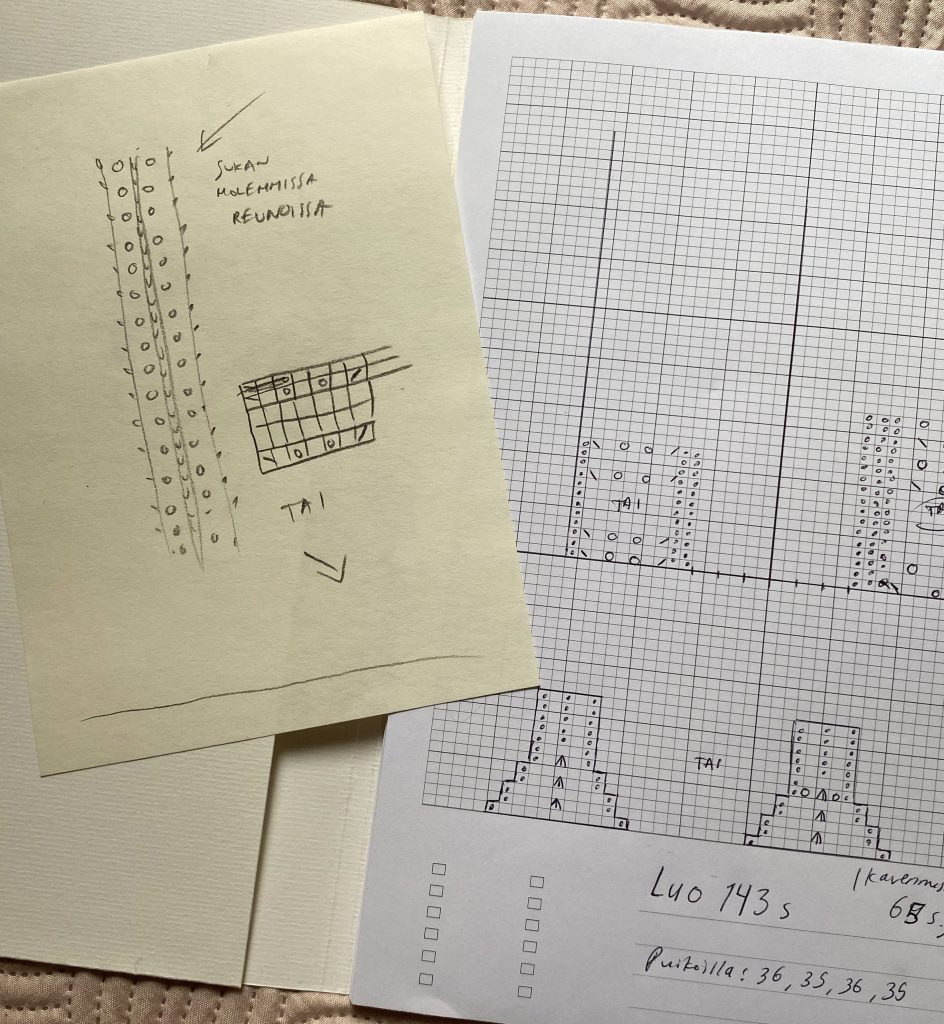 SUKAN
MOLEMMISSA
REUNOISSA
TAI
TAI
TAI
Luo 143 s
Puikoilla: 36, 35, 36, 35